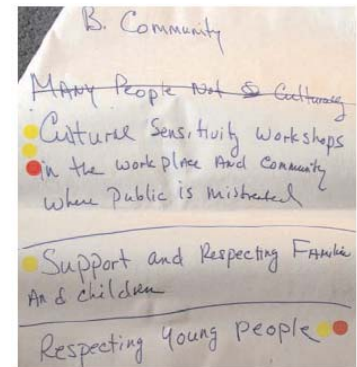 B. Community
Many People Not So Culturaly
Cultural Sensitivity Workshops
in the workplace And Community
where Public is mistreated
Support and Respecting Familie
And children
Respecting young people